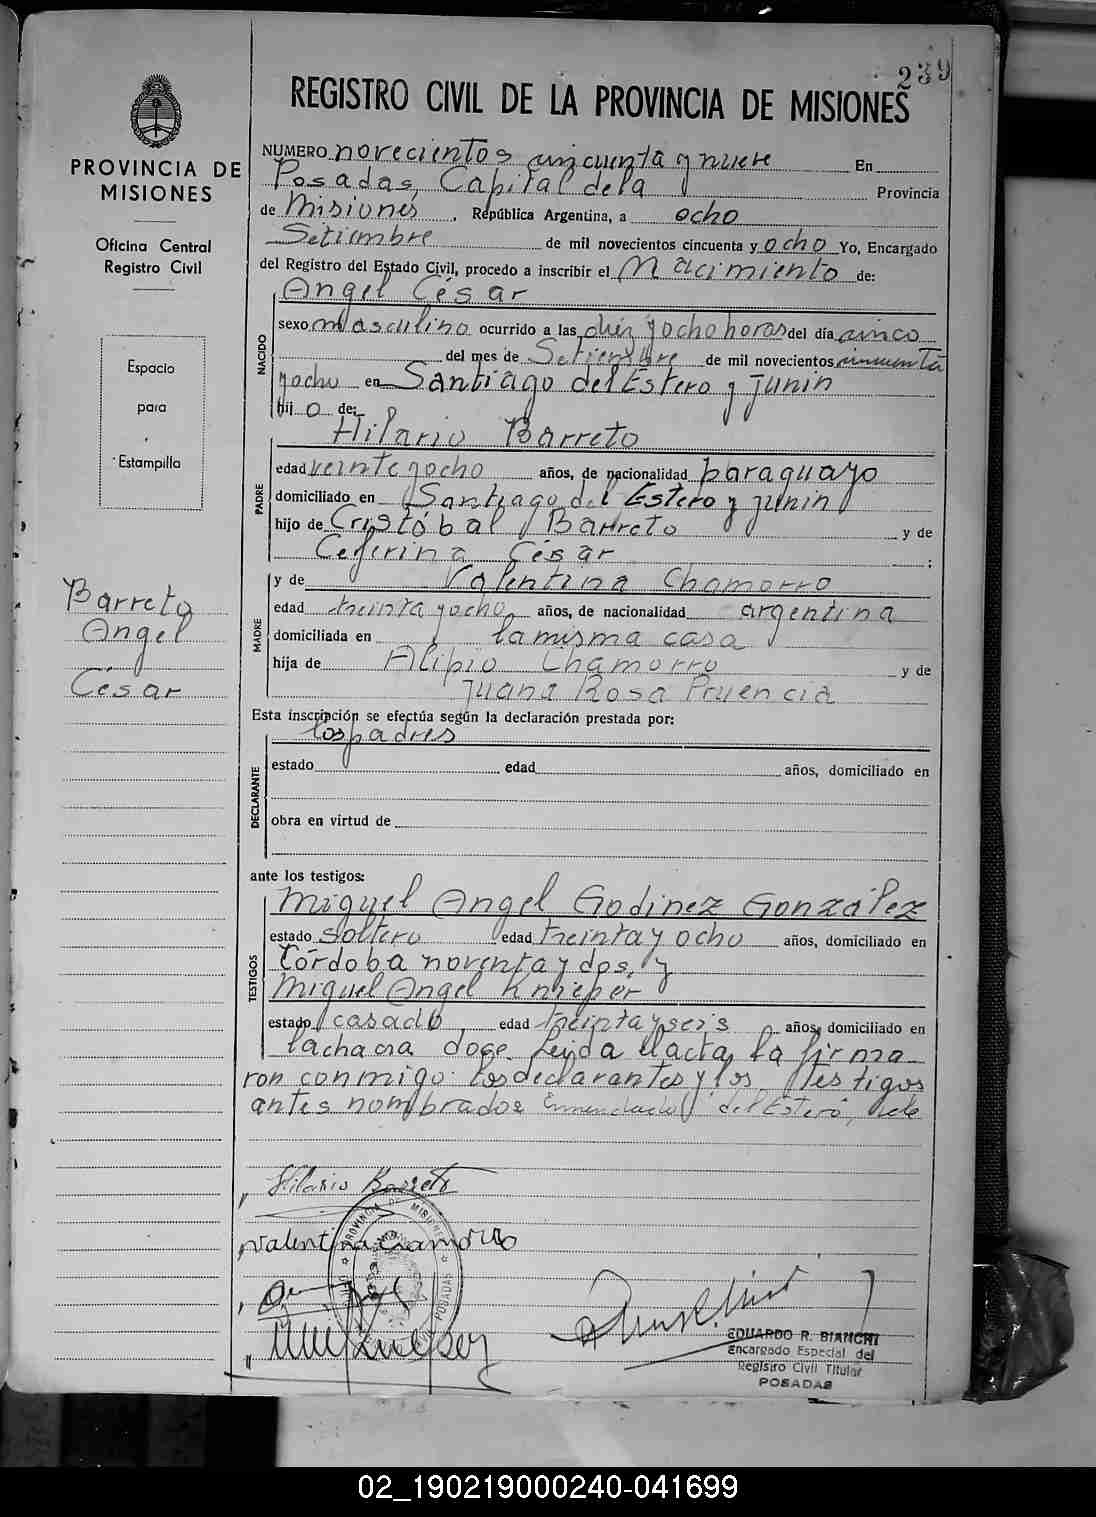 239
REGISTRO CIVIL DE LA PROVINCIA DE MISIONES
PROVINCIA DE
MISIONES
Oficina Central
Registro Civil
Espacio
para
Estampilla
Barreto
Angel
César
NUMERO novecientos cincuenta y nueve En
Posadas, Capital de la Provincia
de Misiones, República Argentina, a ocho
Setiembre de mil novecientos cincuenta y ocho Yo, Encargado
del Registro del Estado Civil, procedo a inscribir el Nacimiento de:
NACIDO
Angel César
sexo masculino ocurrido a las diez y ocho horas del día cinco
del mes de Setiembre de mil novecientos cincuenta
y ocho en Santiago del Estero y Junin
hijo de:
PADRE
Hilario Barreto
edad veinte y ocho años, de nacionalidad paraguayo
domiciliado en Santiago del Estero y Junin
hijo de Cristóbal Barreto y de
Ceferina César ;
MADRE
y de Valentina Chamorro
edad treinta y ocho años, de nacionalidad argentina
domiciliada en la misma casa
hija de Alipio Chamorro y de
Juana Rosa
Esta inscripción se efectúa según la declaración prestada por:
los padres
DECLARANTE
estado edad años, domiciliado en
obra en virtud de
ante los testigos:
TESTIGOS
Miguel Angel Godinez González
estado soltero edad treinta y ocho años, domiciliado en
Córdoba noventa y dos, y
Miguel Angel Knieper
estado casado, edad treinta y seis años, domiciliado en
la chacra doce. Leida el acta, la firma
ron conmigo los declarantes y los testigos
antes nombrados Enmendado del Estero, vale
Hilario Barreto
Valentina Chamorro
PROVINCIA DE MISIONES
POSADAS
EDUARDO R. BIANCHI
Encargado Especial del
Registro Civil Titular
POSADAS
02_190219000240-041699